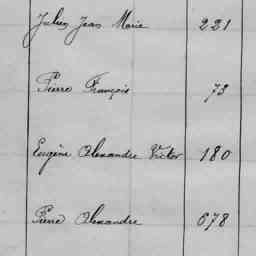 Jules Jean Marie 221
Pierre François 73
Eugène Alexandre Victor 180
Pierre Alexandre 678